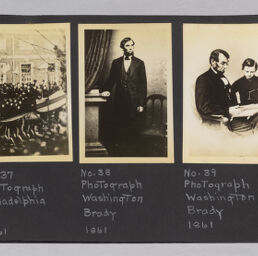 37
TOGRAPH
ADELPHIA
61
No. 38
PHOTOGRAPH
WASHINGTON
BRADY
1861
No. 39
PHOTOGRAPH
WASHINGTON
BRADY
1861